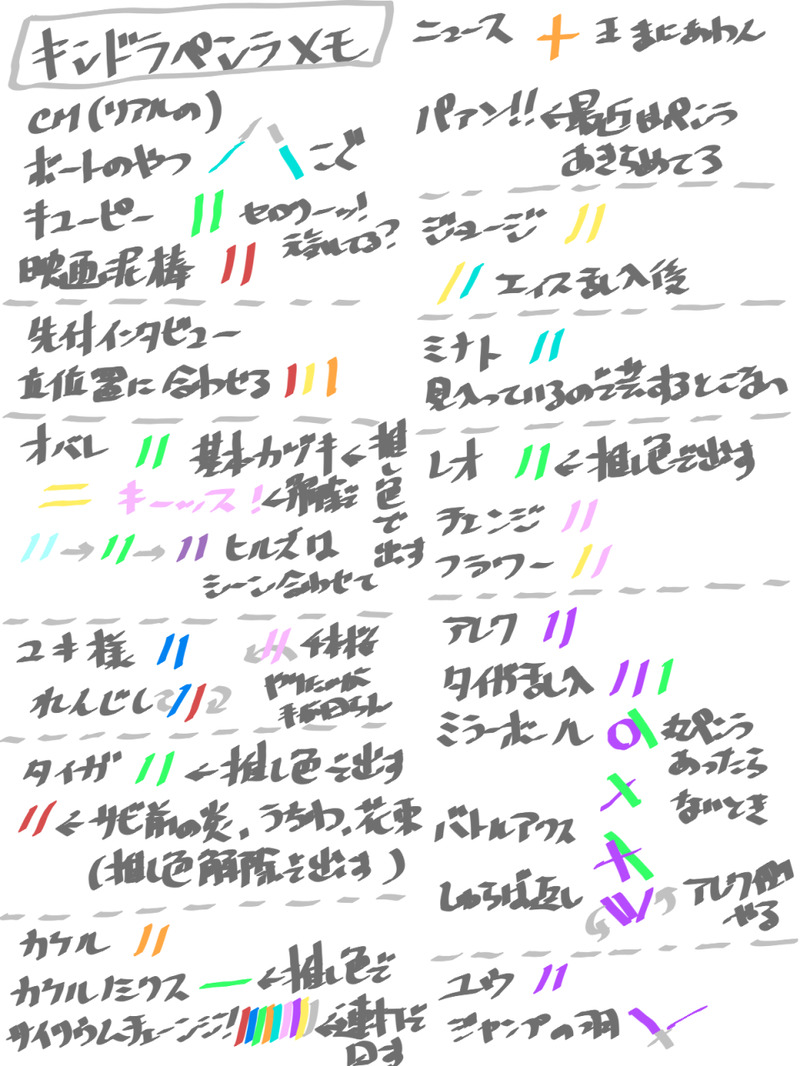 キンドラペンラメモ
CM(リアルの)
ボートのやつ こぐ
キューピー セロリーッ!
映画泥棒
先付インタビュー
立位置に合わせる
オバレ 基本カヅキ←推し色で出す
キーッス!←解除で
→ → ヒルズは
シーン合わせて
ユキ様
れんじし
やりたいが
手が回らん
タイガ ←推し色で出す
←サビ前の炎、うちわ、花束
(推し色解除で出す)
カケル
カケルノミクス ←推し色で
サイリウムチェンジ! ←連打で
回す
ニュース 王 まにあわん
パァン!!←最近はペンラ
あきらめてる
ジョージ
エィス乱入後
ミナト
見入っているので
レオ ←推し色で出す
チェンジ
フラワー
アレク
タイガ乱入
ミラーボール 丸ペンラ
あったら
ないとき
バトルアウス
しゅらば返し アレク側
やる
ユウ
ジャンプの羽